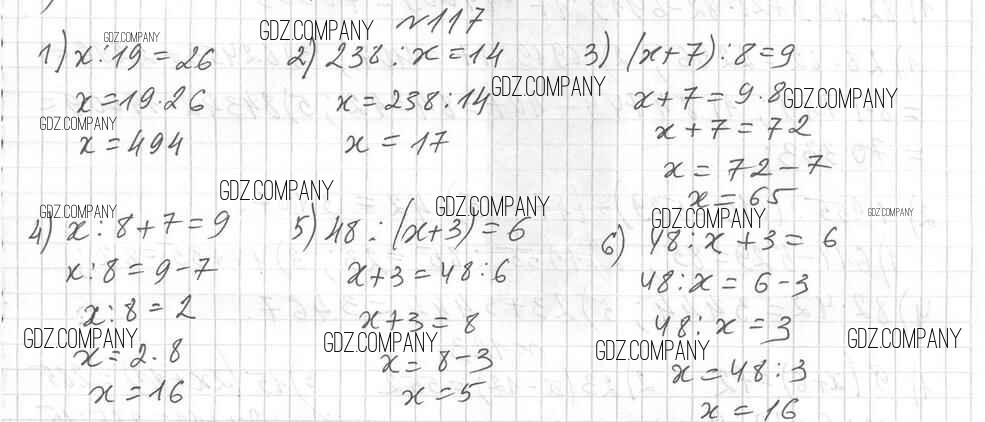 №117
1) x:19=26
x=19·26
x=494
2) 238:x=14
x=238:14
x=17
3) (x+7):8=9
x+7=9·8
x+7=72
x=72-7
x=65
4) x:8+7=9
x:8=9-7
x:8=2
x=2·8
x=16
5) 48:(x+3)=6
x+3=48:6
x+3=8
x=8-3
x=5
6) 48:x+3=6
48:x=6-3
48:x=3
x=48:3
x=16
GDZ.COMPANY
GDZ.COMPANY
GDZ.COMPANY
GDZ.COMPANY
GDZ.COMPANY
GDZ.COMPANY
GDZ.COMPANY
GDZ.COMPANY
GDZ.COMPANY
GDZ.COMPANY
GDZ.COMPANY
GDZ.COMPANY
GDZ.COMPANY
GDZ.COMPANY